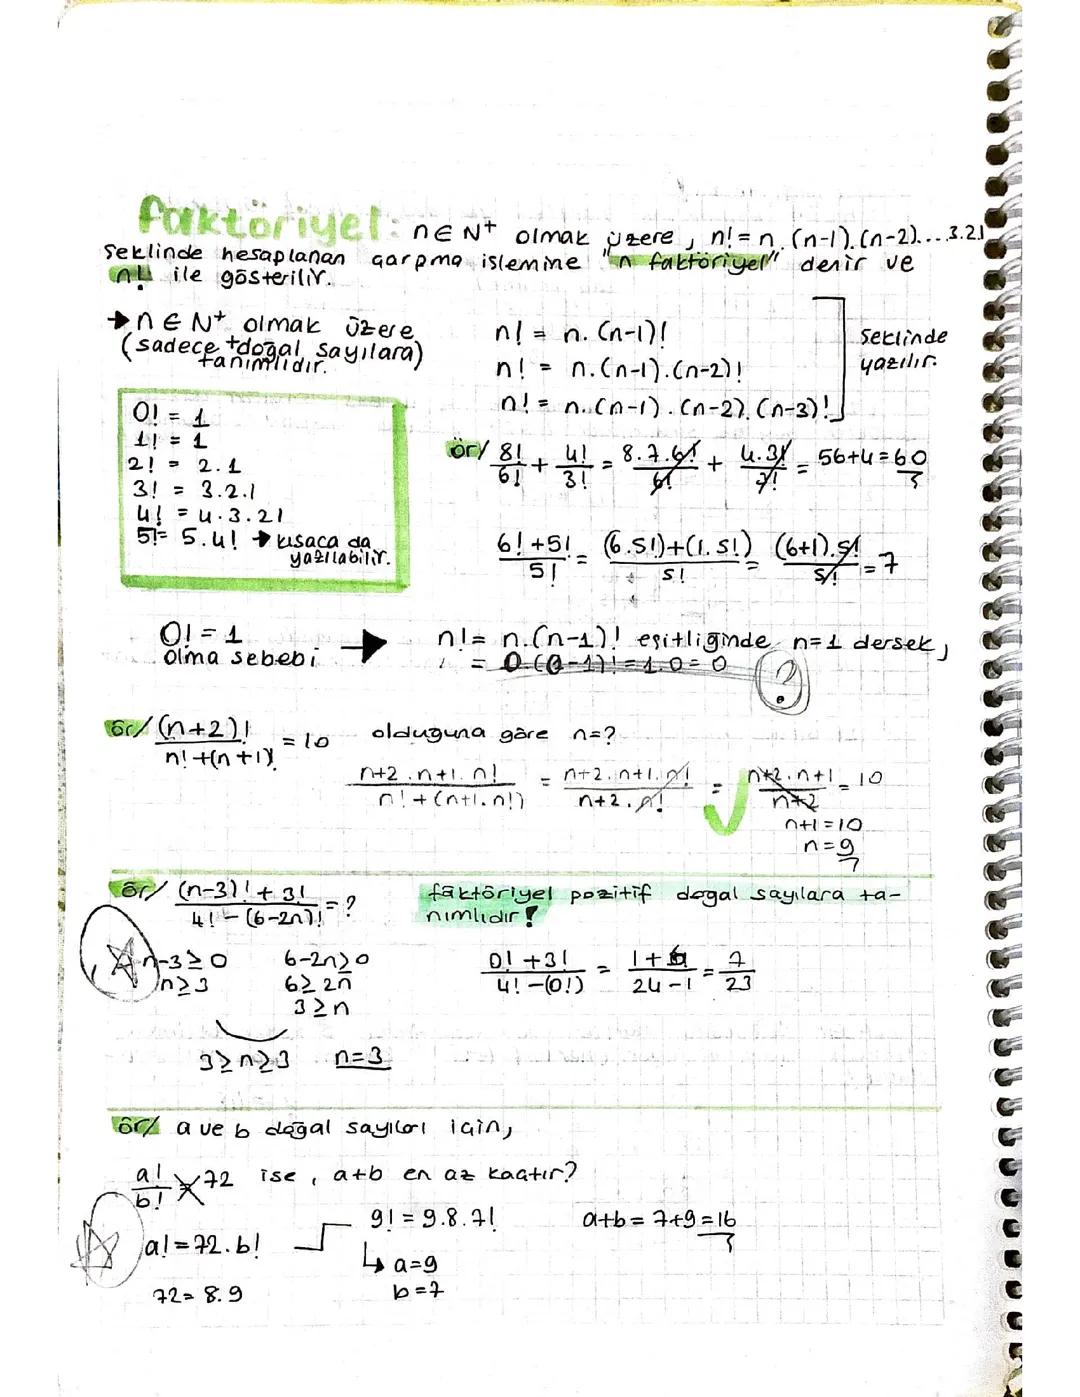 faktöriyel: n∈N⁺ olmak üzere, n! = n.(n-1).(n-2)...3.2.1
şeklinde hesaplanan çarpma işlemine "n faktöriyel" denir ve
n! ile gösterilir.
→ n∈N⁺ olmak üzere
(sadece +doğal sayılara)
tanımlıdır.
n! = n.(n-1)!
n! = n.(n-1).(n-2)!
n! = n.(n-1).(n-2).(n-3)!
şeklinde
yazılır.
0! = 1
1! = 1
2! = 2.1
3! = 3.2.1
4! = 4.3.21
5! = 5.4! → kısaca da
yazılabilir.
ör/ 8!/6! + 4!/3! = 8.7.6!/6! + 4.3!/3! = 56+4=60
6!+5!/5! = (6.5!)+(1.5!)/5! = (6+1).5!/5! = 7
0! = 1
olma sebebi →
n! = n.(n-1)! eşitliğinde n=1 dersek,
= 0.(0-1)! = 1.0 = 0 ?
ör/ (n+2)!/n!+(n+1)! = 10 olduğuna göre n=?
n+2.n+1.n!/n!+(n+1.n!) = n+2.n+1.n!/n+2.n! = n+2.n+1/n+2 = 10
n+1=10
n=9
ör/ (n-3)!+3!/4!-(6-2n)! = ?
faktöriyel pozitif doğal sayılara ta-
nımlıdır!
n-3≥0
n≥3
6-2n≥0
6≥2n
3≥n
3≥n≥3 n=3
0!+3!/4!-(0!) = 1+6/24-1 = 7/23
ör/ a ve b doğal sayıları için,
a!/b! = 72 ise, a+b en az kaçtır?
a! = 72.b!
72 = 8.9
9! = 9.8.7!
↳ a=9
b=7
a+b = 7+9 = 16